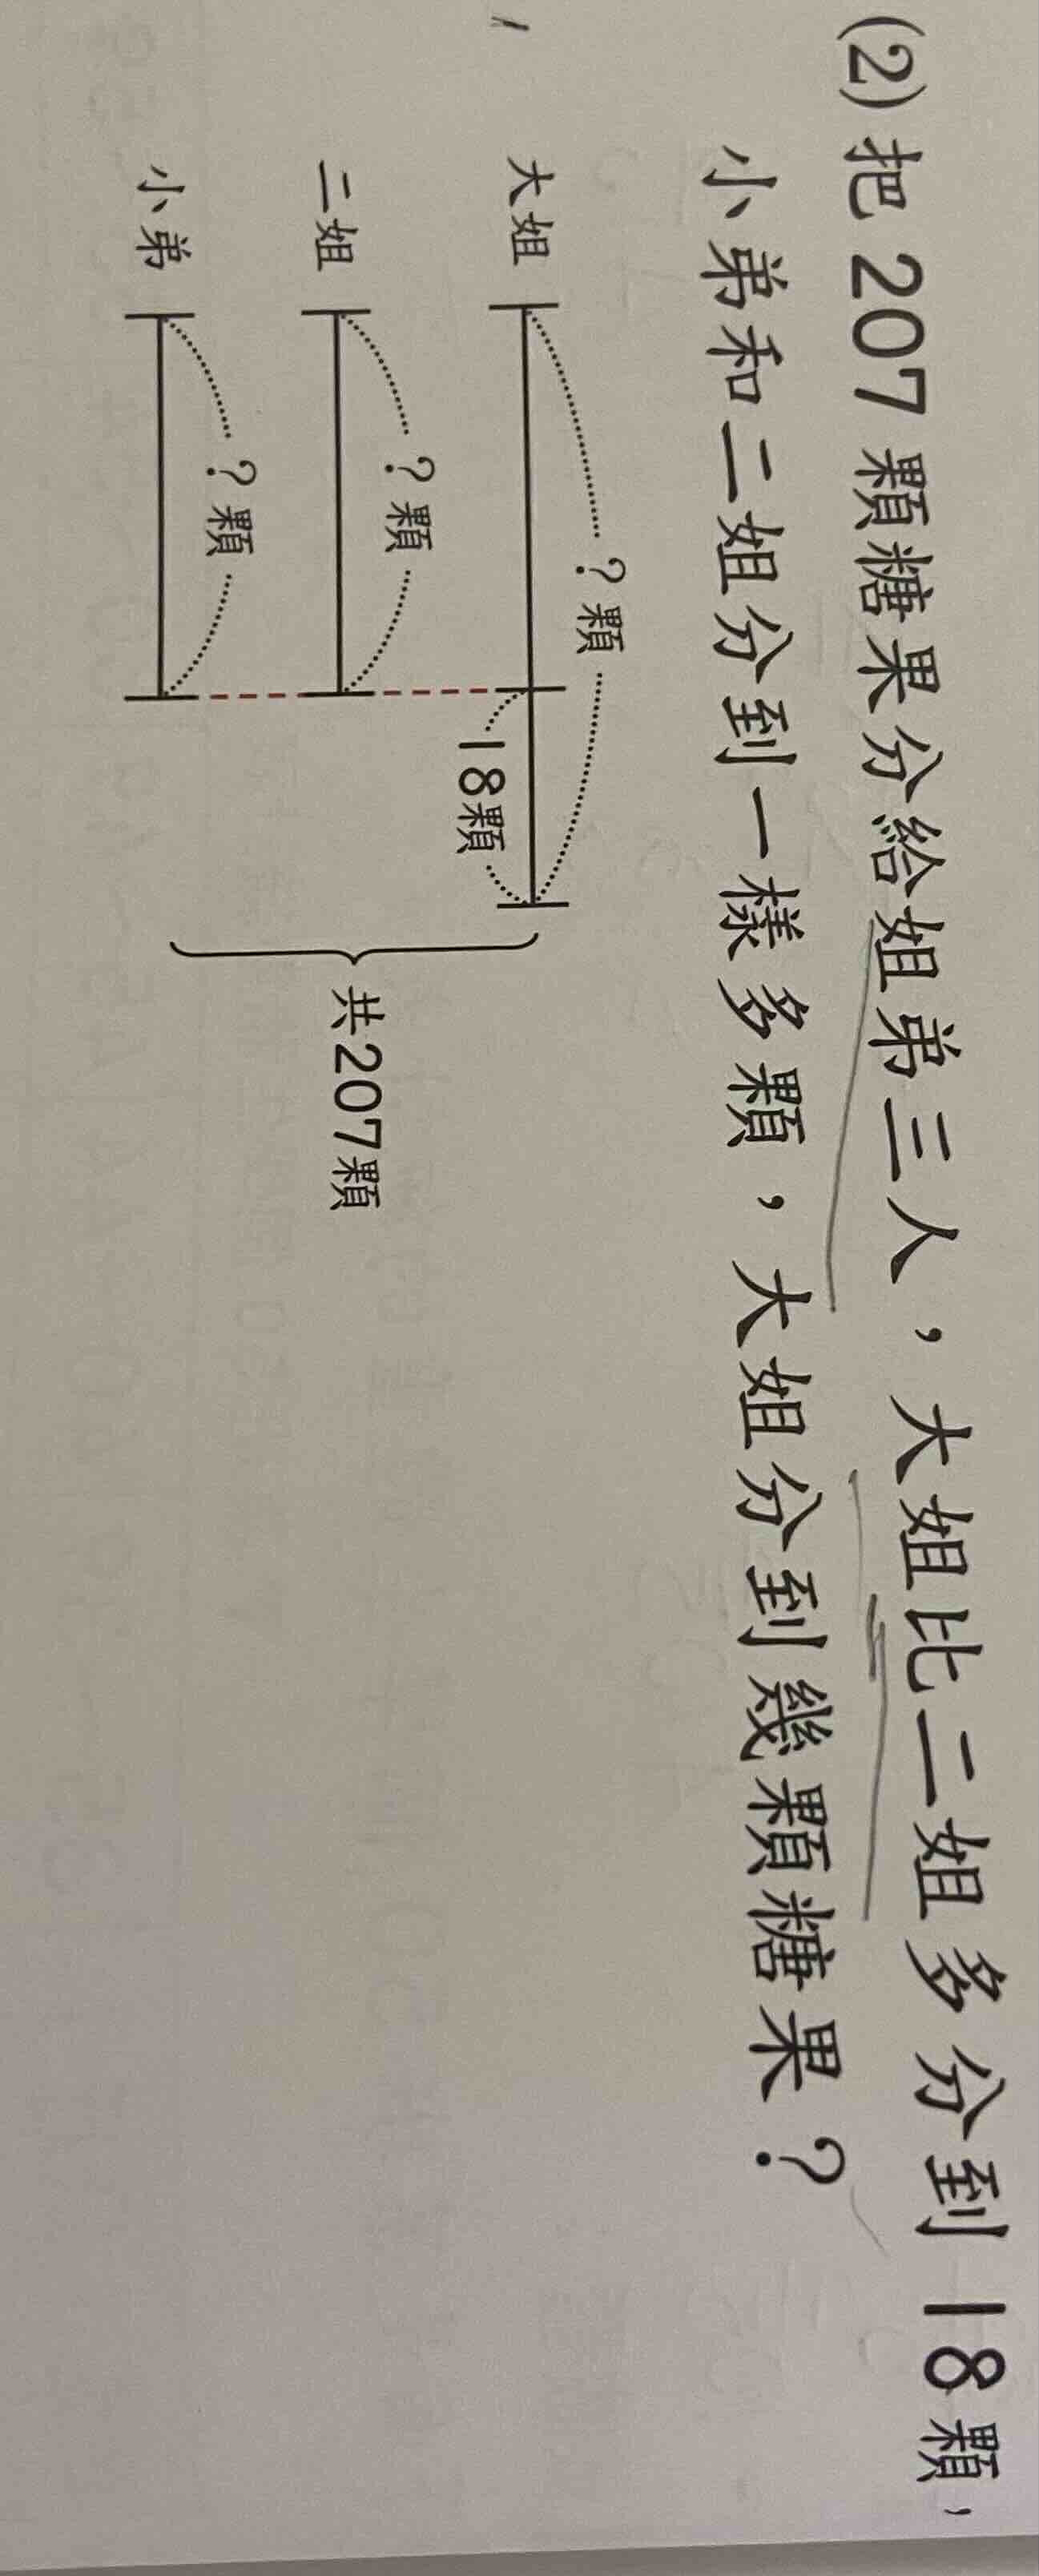 (2) 把 207 顆糖果分給姐弟三人，大姐比二姐多分到 18 顆，
小弟和二姐分到一樣多顆，大姐分到幾顆糖果？
？顆
大姐
18顆
？顆
二姐
共207顆
？顆
小弟